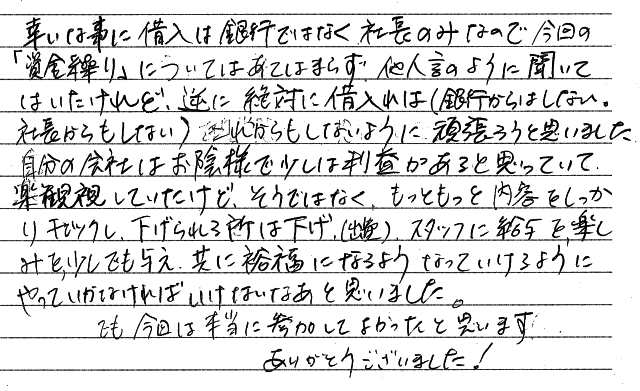 幸いな事に借入は銀行ではなく社長のみなので今回の
「資金繰り」についてはあてはまらず、他人言のように聞いて
はいたけれど、逆に絶対に借入れは(銀行からはしない。
社長からもしない)これからもしないように頑張ろうと思いました
自分の会社はお陰様で少しは利益があると思っていて、
楽観視していたけど、そうではなく、もっともっと内容をしっか
りチェックし、下げられる所は下げ、(出費)、スタッフに給与を、楽し
みを、少しでも与え、共に裕福になるようなっていけるように
やっていかなければいけないなあと思いました。
でも今回は本当に参加してよかったと思います
ありがとうございました!